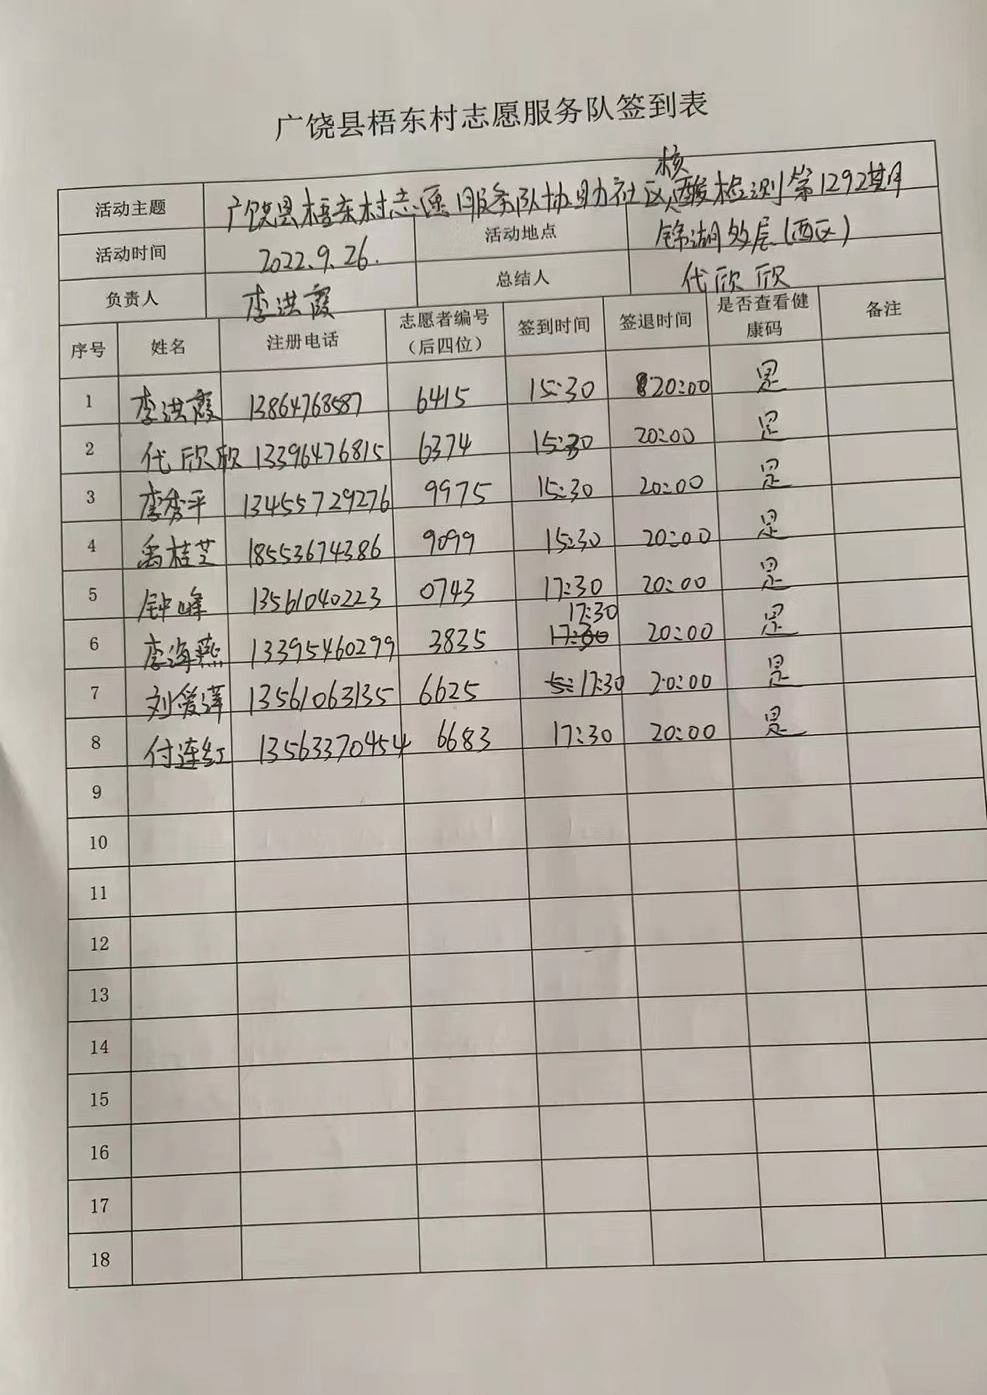 广饶县梧东村志愿服务队签到表
活动主题 广饶县梧东村志愿服务队协助社区核酸检测第1292期
活动时间 2022.9.26. 活动地点 锦湖 (西区)
负责人 李洪霞 总结人 代欣欣
序号 姓名 注册电话 志愿者编号（后四位） 签到时间 签退时间 是否查看健康码 备注
1 李洪霞 13864768587 6415 15:30 20:00 是
2 代欣欣 13396476815 6374 15:30 20:00 是
3 李秀平 13455729276 9975 15:30 20:00 是
4 禹桂芝 18553674386 9099 15:30 20:00 是
5 钟峰 13561040223 0743 17:30 20:00 是
6 李海燕 13395460299 3835 17:30 20:00 是
7 刘爱莲 13561063135 6625 17:30 20:00 是
8 付连红 13563370454 6683 17:30 20:00 是
9
10
11
12
13
14
15
16
17
18